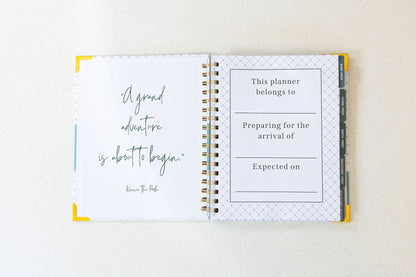 "A grand
adventure
is about to begin."
Winnie the Pooh
This planner
belongs to
Preparing for the
arrival of
Expected on